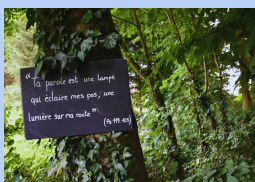 “Ta parole est une lampe
qui éclaire mes pas, une
lumière sur ma route”.
(Ps 119.105)